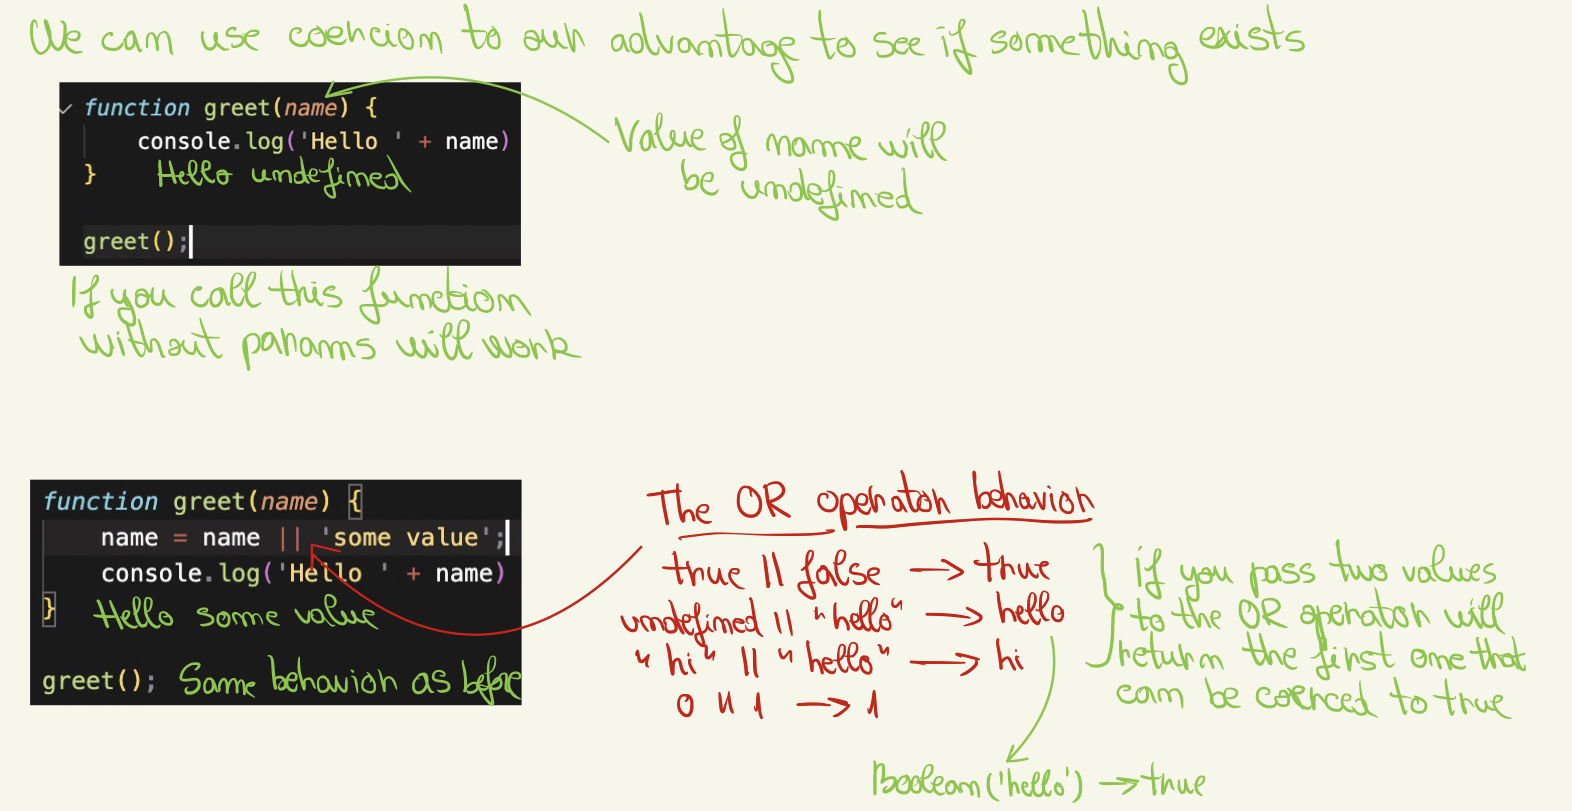 We can use coercion to our advantage to see if something exists
function greet(name) {
console.log('Hello ' + name)
}
Hello undefined
greet();
Value of name will
be undefined
If you call this function
without params will work
function greet(name) {
name = name || 'some value';
console.log('Hello ' + name)
}
Hello some value
greet();
Same behavior as before
The OR operator behavior
true || false → true
undefined || "hello" → hello
"hi" || "hello" → hi
0 || 1 → 1
if you pass two values
to the OR operator will
return the first one that
can be coerced to true
Boolean('hello') → true